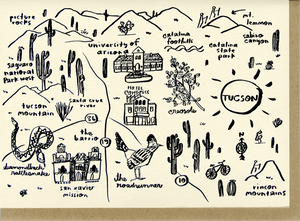 picture
rocks
mt.
lemmon
catalina
foothills
sabino
canyon
university of
arizona
catalina
state
park
saguaro
national
park west
HOTEL
CONGRESS
TUCSON
tucson
mountain
santa cruz
river
creosote
the
barrio
19
diamondback
rattlesnake
san xavier
mission
the
roadrunner
10
N
rincon
mountains